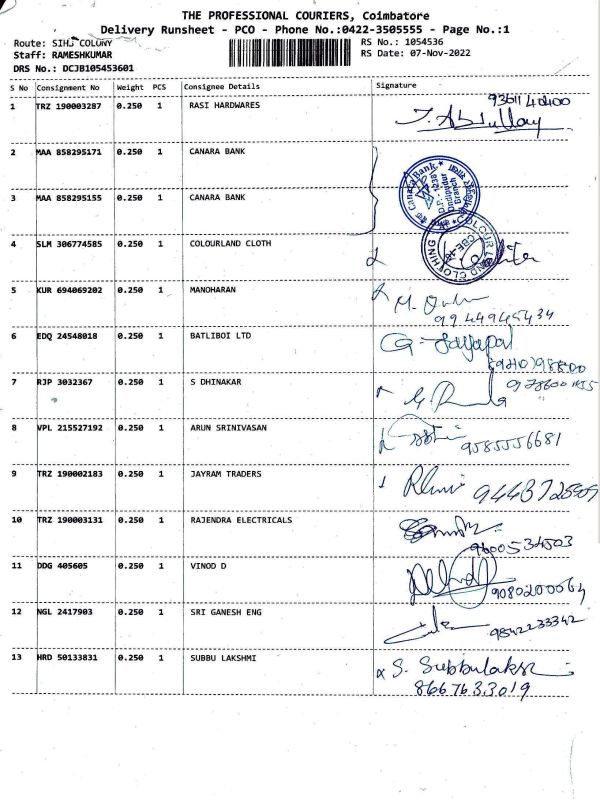 THE PROFESSIONAL COURIERS, Coimbatore
Delivery Runsheet - PCO - Phone No.:0422-3505555 - Page No.:1
Route: SIHS COLONY
RS No.: 1054536
Staff: RAMESHKUMAR
RS Date: 07-Nov-2022
DRS No.: DCJB105453601
S No Consignment No Weight PCS Consignee Details Signature
1 TRZ 190003287 0.250 1 RASI HARDWARES
2 MAA 858295171 0.250 1 CANARA BANK
3 MAA 858295155 0.250 1 CANARA BANK
Canara Bank
4 SLM 306774585 0.250 1 COLOURLAND CLOTH
COLOUR LAND CLOTHING
5 KUR 694069202 0.250 1 MANOHARAN
9944945434
6 EDQ 24548018 0.250 1 BATLIBOI LTD G. Jayapal
7 RJP 3032367 0.250 1 S DHINAKAR
8 VPL 215527192 0.250 1 ARUN SRINIVASAN
9585556681
9 TRZ 190002183 0.250 1 JAYRAM TRADERS
10 TRZ 190003131 0.250 1 RAJENDRA ELECTRICALS
9600534503
11 DDG 405605 0.250 1 VINOD D
9080200064
12 NGL 2417903 0.250 1 SRI GANESH ENG
9842233342
13 HRD 50133831 0.250 1 SUBBU LAKSHMI S. Subbulaksi
8667633019